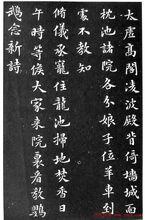 太虛高閣凌波殿背倚墻城面
枕池諸院各分娘子位羊車到
處不教知
脩儀承寵住龍池掃地焚香日
午時等候大家來院裏看教鸚
鵡念新詩